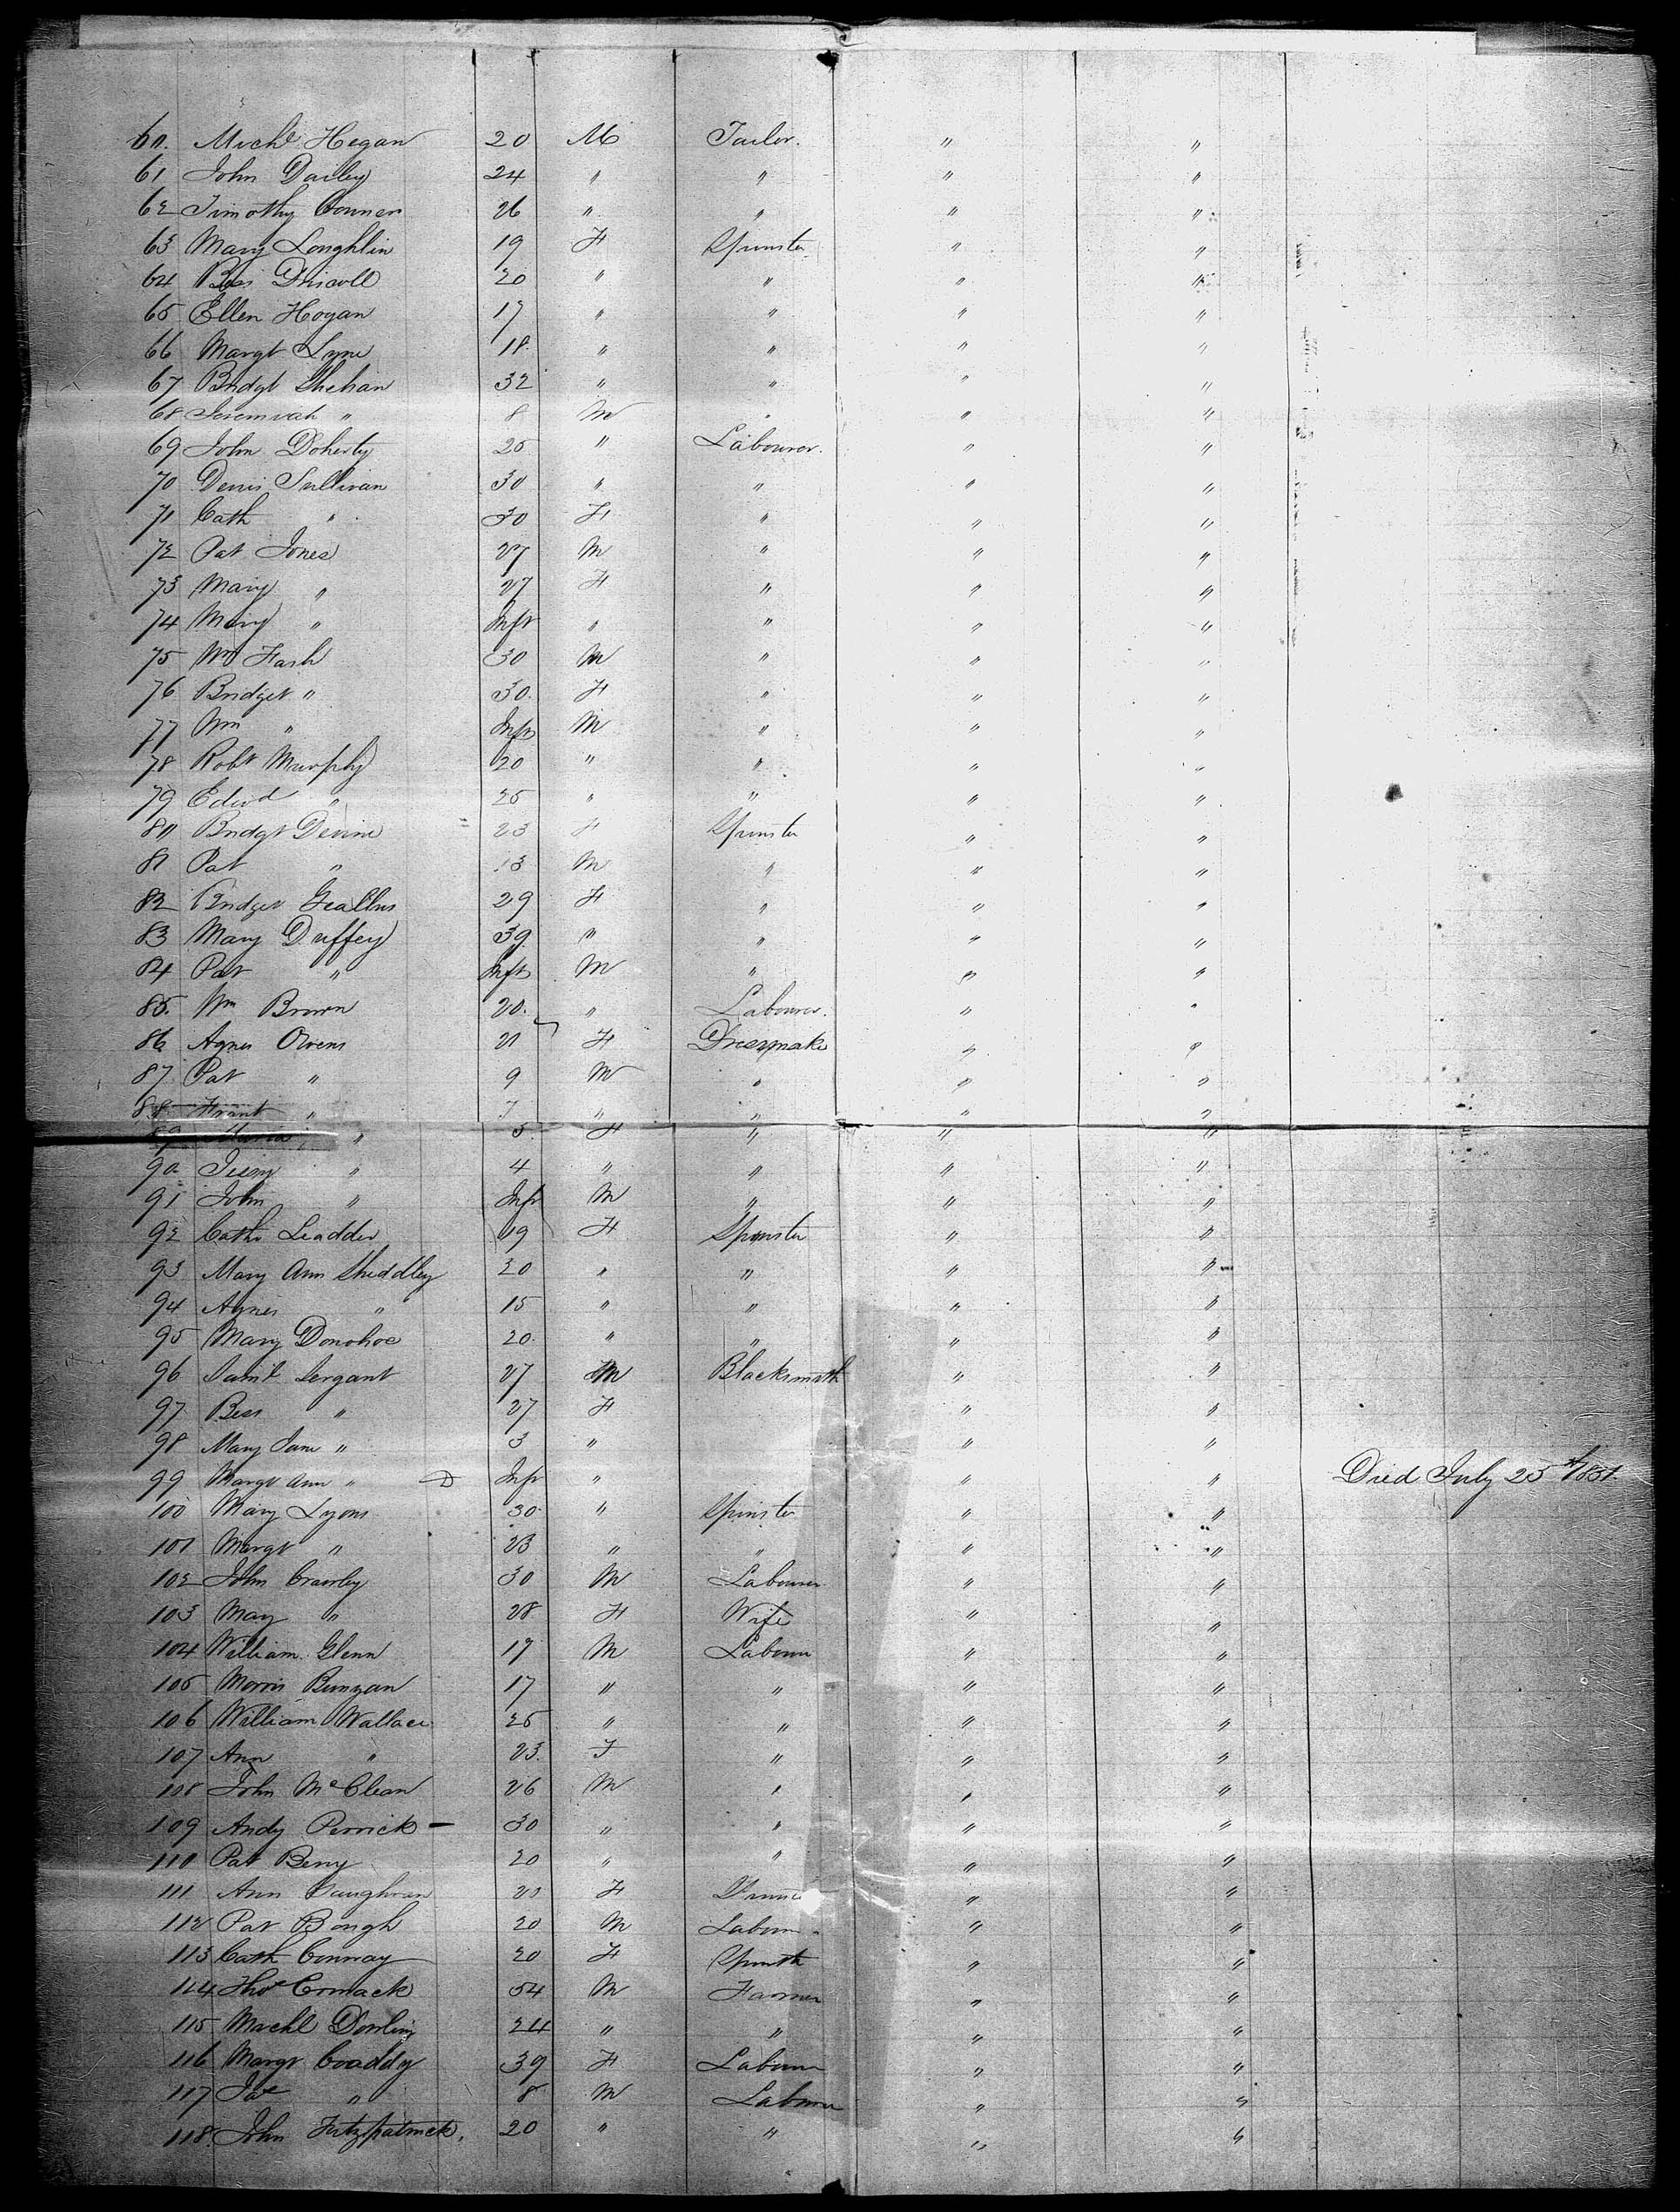 60. Michl Hogan 20 M Tailor. " "
61 John Dailey 24 " " " "
62 Timothy Conner 26 " " " "
63 Mary Loughlin 19 F Spinster " "
64 Driscoll 20 " " " "
65 Ellen Hogan 17 " " " "
66 Margt Lyne 18 " " " "
67 Bridgt Shehan 32 " " " "
68 Jeremiah " 8 M " " "
69 John Doherty 25 " Labourer. " "
70 Denis Sullivan 30 " " " "
71 Cath " 30 F " " "
72 Pat Jones 27 M " " "
73 Mary " 27 F " " "
74 Mary " Inft " " " "
75 Wm 30 M " " "
76 Bridget " 30. F " " "
77 Wm " Inft M " " "
78 Robt Murphy 20 " " " "
79 Edwd " 25 " " " "
80 Bridgt Devine 23 F Spinster " "
81 Pat " 13 M " " "
82 Bridget 29 F " " "
83 Mary Duffey 39 " " " "
84 Pat " Inft M " " "
85. Wm Brown 20. " Labourer. " "
86 Agnes Owens 21 F Dressmaker " "
87 Pat " 9 M " " "
88 Frank " 7 " " " "
89 Maria " 5 F " " "
90 " 4 " " " "
91 John " Inft M " " "
92 Cathe Leadder 19 F Spinster " "
93 Mary Ann Sheddley 20 " " " "
94 Agnes " 15 " " " "
95 Mary Donohoe 20. " " " "
96 Saml Sergant 27 M Blacksmith " "
97 Bess " 27 F " "
98 Mary Jane " 3 " " "
99 Margt Ann " D Inft " " " Died July 25th 1851.
100 Mary Lyons 30. " Spinster " "
101 Margt " 23 " " " "
102 John Crawley 30 M Labourer " "
103 Mary " 28 F Wife " "
104 William Glenn 17 M Labour " "
105 Morris Bunyan 17 " " " "
106 William Wallace 25 " " " "
107 Ann " 23. F " " "
108 John McClean 26 M " " "
109 Andy Perrick — 30 " " " "
110 Pat Berry 20 " " " "
111 Ann F " "
112 Pat Bough 20 M Labour " "
113 Cath Conway 20 F Spinster " "
114 Thos Cormack 54 M Farmer " "
115 Michl Dowling 24 " " " "
116 Margt Coaddy 39 F Labour " "
117 " 8 M Labour " "
118. John Fitzpatrick. 20 " " " "